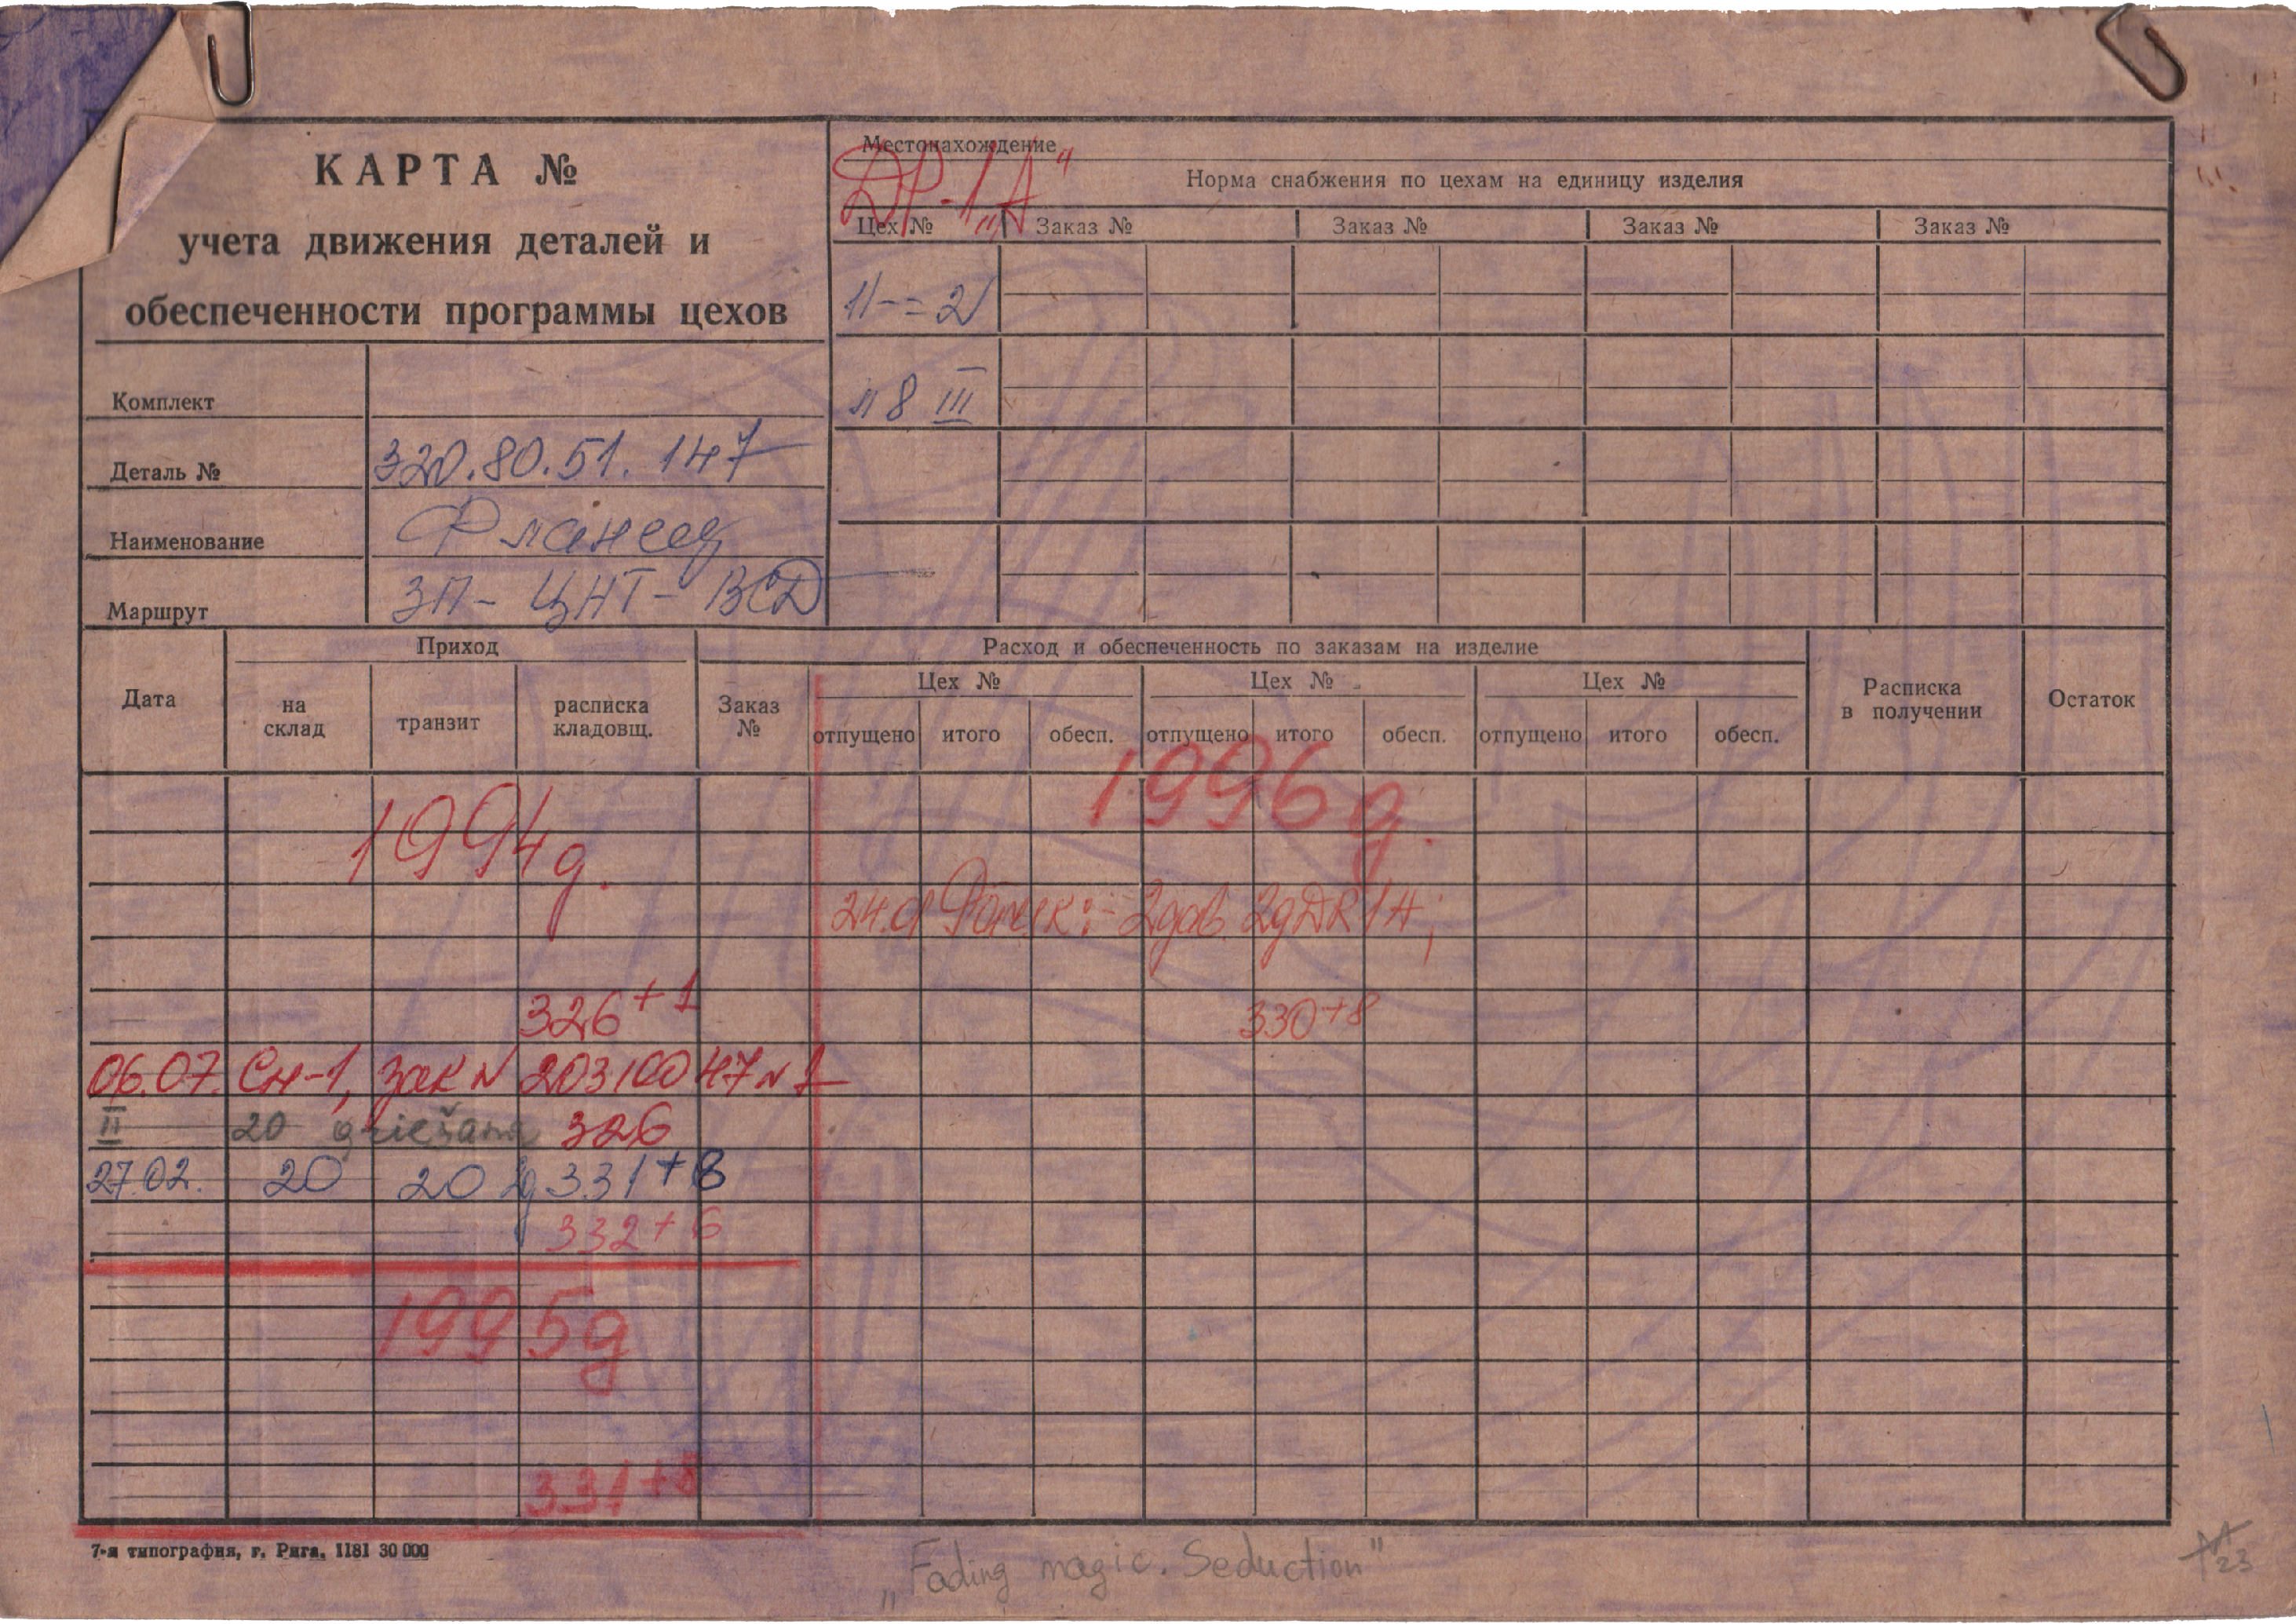 КАРТА №
учета движения деталей и
обеспеченности программы цехов
Комплект
Деталь № 320.80.51.147
Наименование Фланец
Маршрут ЗП- ЦНТ- ВСД
Местонахождение
ДР-1„А"
Норма снабжения по цехам на единицу изделия
Цех № Заказ № Заказ № Заказ № Заказ №
11--=2
8 III
Дата
Приход
на склад
транзит
расписка кладовщ.
Расход и обеспеченность по заказам на изделие
Заказ №
Цех № Цех № Цех №
отпущено итого обесп. отпущено итого обесп. отпущено итого обесп.
Расписка в получении
Остаток
1994g.
326+1
06.07. Сн-1, зак N 20310047 N 1
II 20 griešana 326
27.02. 20 20 g 331+8
332+6
1995g
331+8
1996g.
24.01 2gab. 2gDR1A;
330+8
7-я типография, г. Рига, 1181 30 000
„Fading magic. Seduction"
23